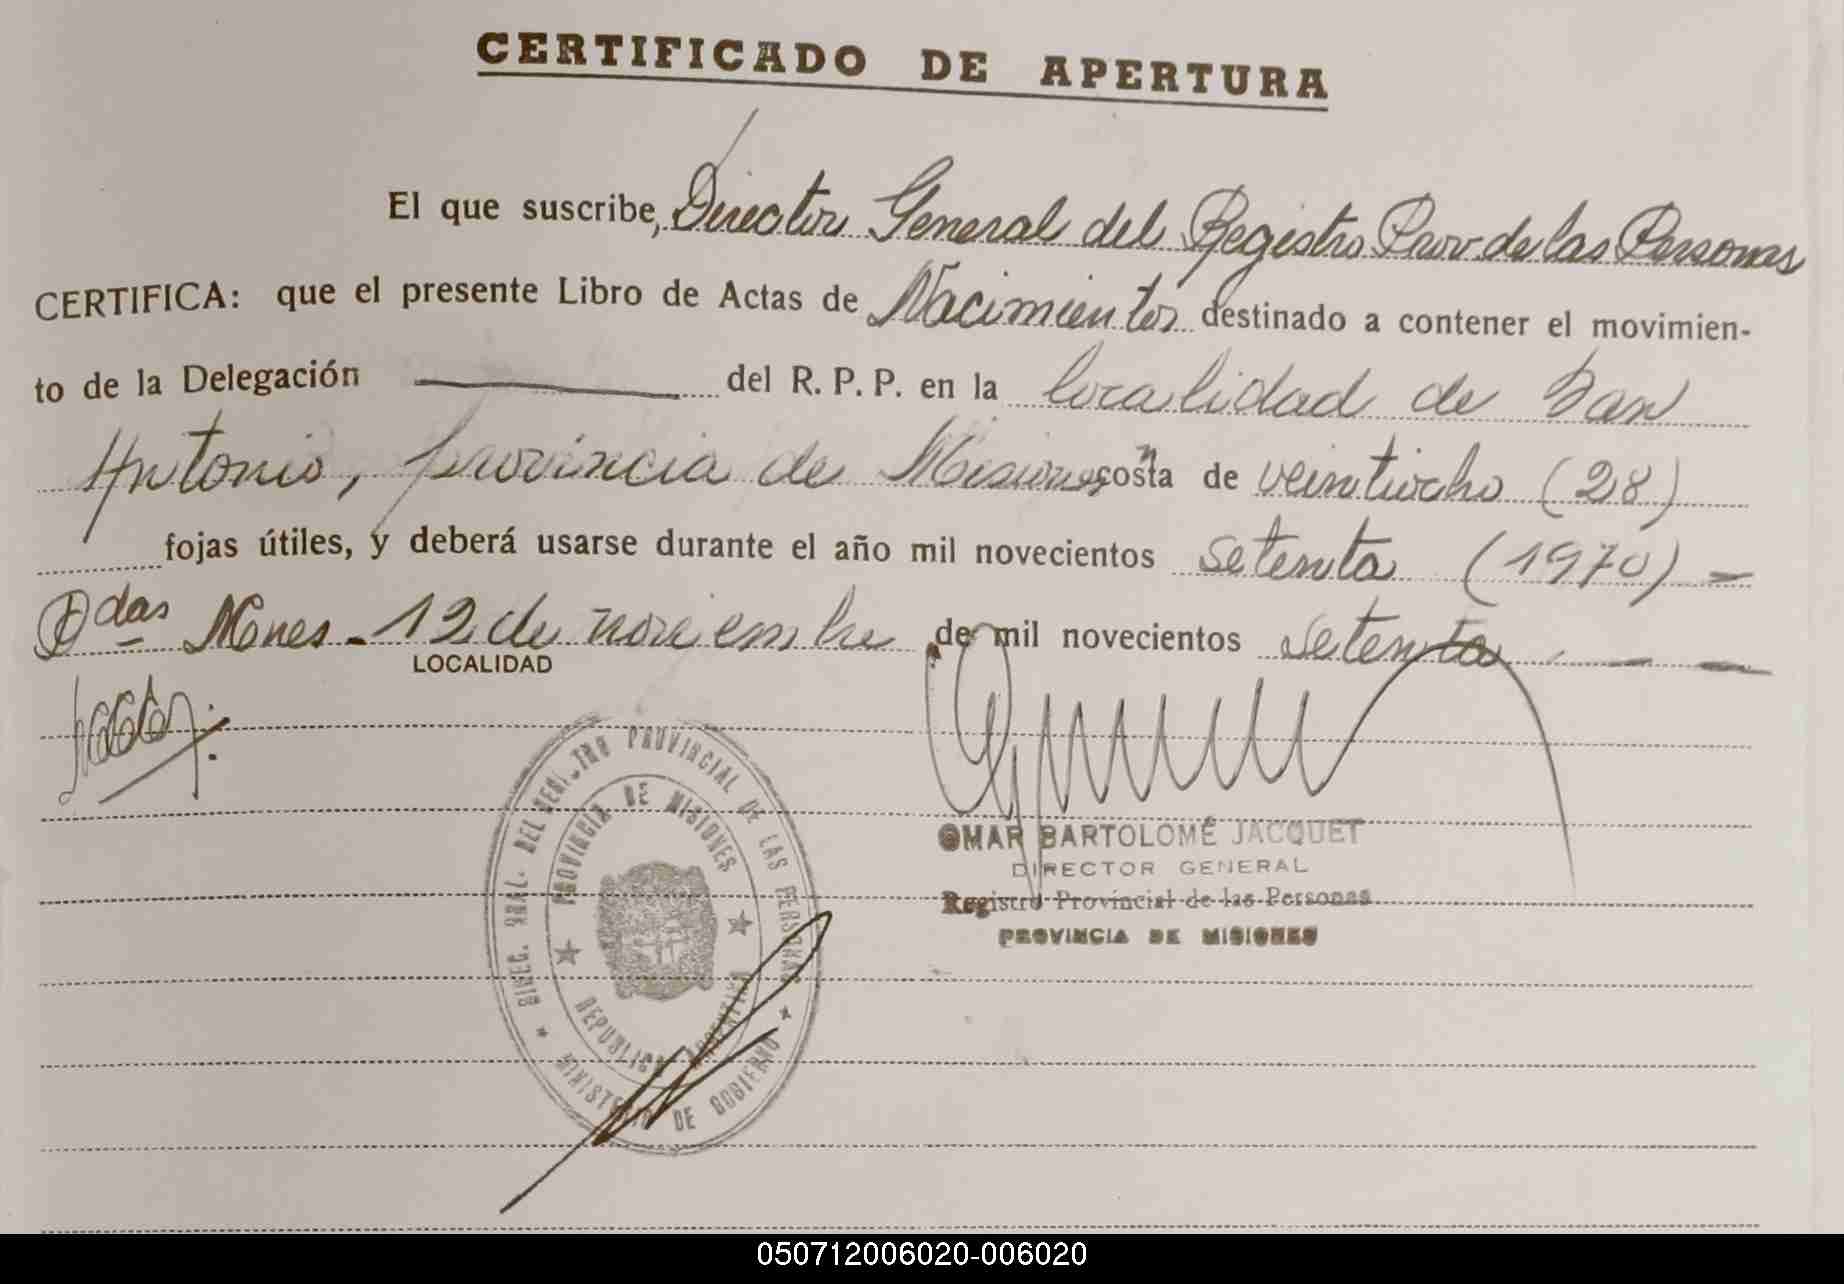 CERTIFICADO DE APERTURA
El que suscribe, Director General del Registro Prov. de las Personas
CERTIFICA: que el presente Libro de Actas de Nacimientos destinado a contener el movimien-
to de la Delegación del R. P. P. en la localidad de San
Antonio, provincia de Misiones, consta de veintiocho (28)
fojas útiles, y deberá usarse durante el año mil novecientos setenta (1970) —
Pdas Mnes - 12 de noviembre de mil novecientos setenta . — —
LOCALIDAD
DIREC. GRAL. DEL REGISTRO PROVINCIAL DE LAS PERSONAS
PROVINCIA DE MISIONES
REPUBLICA ARGENTINA
MINISTERIO DE GOBIERNO
OMAR BARTOLOMÉ JACQUET
DIRECTOR GENERAL
Registro Provincial de las Personas
PROVINCIA DE MISIONES
050712006020-006020